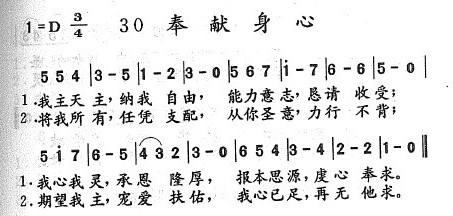 1=D 3/4 30 奉献身心
5 5 4 |3 - 5 |1 - 2 |3 - 0 |5 6 7 |i - 7 |6 - 6 |5 - 0 |
1.我主天主,纳我 自由, 能力意志,恳请 收受;
2.将我所有,任凭 支配, 从你圣意,力行 不背;
5 i 7 |6 - 5 |4 3 2 |3 - 0 |6 5 4 |3 - 4 |3 - 2 |1 - 0 ‖
1.我心我灵,承恩 隆厚, 报本思源,虔心 奉求。
2.期望我主,宠爱 扶佑, 我心已足,再无 他求。